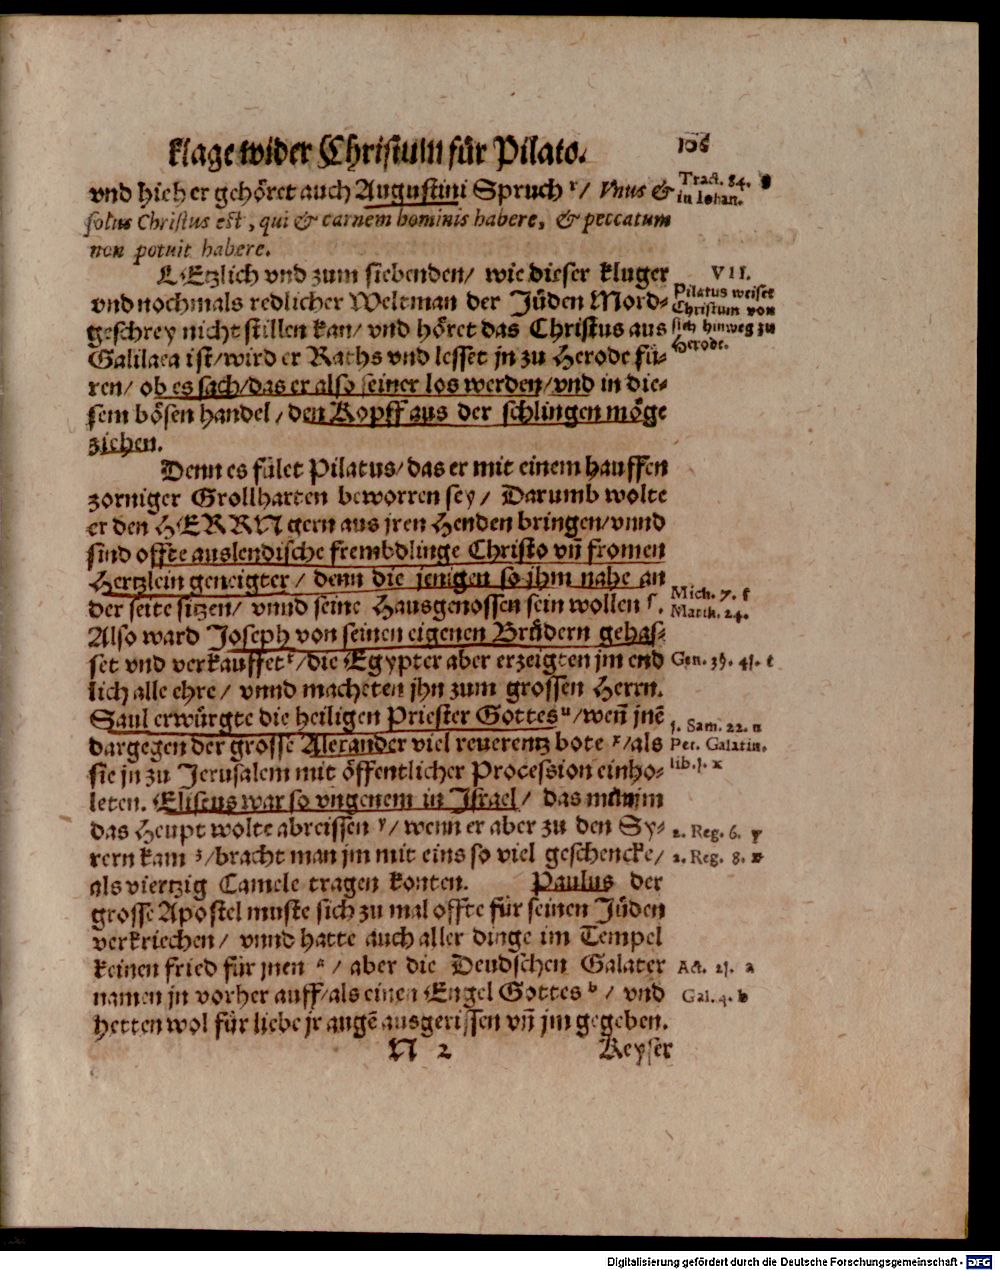 klage wider Christum für Pilato. 106
vnd hieher gehöret auch Augustini Spruch r/ Vnus &
Tract. 84.
in Iohan.
solus Christus est, qui & carnem hominis habere, & peccatum
non potuit habere.
LEtzlich vnd zum siebenden/ wie dieser kluger
VII.
vnd nochmals redlicher Weltman der Jüden Mord-
Pilatus weiset
Christum von
geschrey nicht stillen kan/ vnd höret das Christus aus
sich hinweg zu
Galilaea ist/ wird er Raths vnd lesset jn zu Herode fü-
Herode.
ren/ ob es sach/ das er also seiner los werden/ vnd in die-
sem bösen handel/ den Kopff aus der schlingen möge
ziehen.
Denn es fület Pilatus/ das er mit einem hauffen
zorniger Grollharten beworren sey/ Darumb wolte
er den HERRN gern aus jren Henden bringen/ vnnd
sind offte auslendische frembdlinge Christo vn̄ fromen
Hertzlein geneigter/ denn die jenigen so ihm nahe an
der seite sitzen/ vnnd seine Hausgenossen sein wollen ſ.
Mich. 7. ſ
Matth. 24.
Also ward Joseph von seinen eigenen Brüdern gehas-
set vnd verkauffet t/ die Egypter aber erzeigten jm end
Gen. 39. 41. t
lich alle ehre/ vnnd macheten jhn zum grossen Herrn.
Saul erwürgte die heiligen Priester Gottes u/ wen̄ jnē
1. Sam. 22. u
dargegen der grosse Alexander viel reuerentz bote x/ als
Pet. Galatin.
sie jn zu Jerusalem mit öffentlicher Procession einho-
lib. 1. x
leten. Eliseus war so vngenem in Israel/ das man jm
das Heupt wolte abreissen y/ wenn er aber zu den Sy-
2. Reg. 6. y
rern kam z/ bracht man jm mit eins so viel geschencke/
2. Reg. 8. z
als viertzig Camele tragen konten. Paulus der
grosse Apostel muste sich zu mal offte für seinen Jüden
verkriechen/ vnnd hatte auch aller dinge im Tempel
keinen fried für jnen a/ aber die Deudschen Galater
Act. 21. a
namen jn vorher auff/ als einen Engel Gottes b/ vnd
Gal. 4. b
hetten wol für liebe jr augē ausgerissen vn̄ jm gegeben.
N 2 Keyser
Digitalisierung gefördert durch die Deutsche Forschungsgemeinschaft - DFG